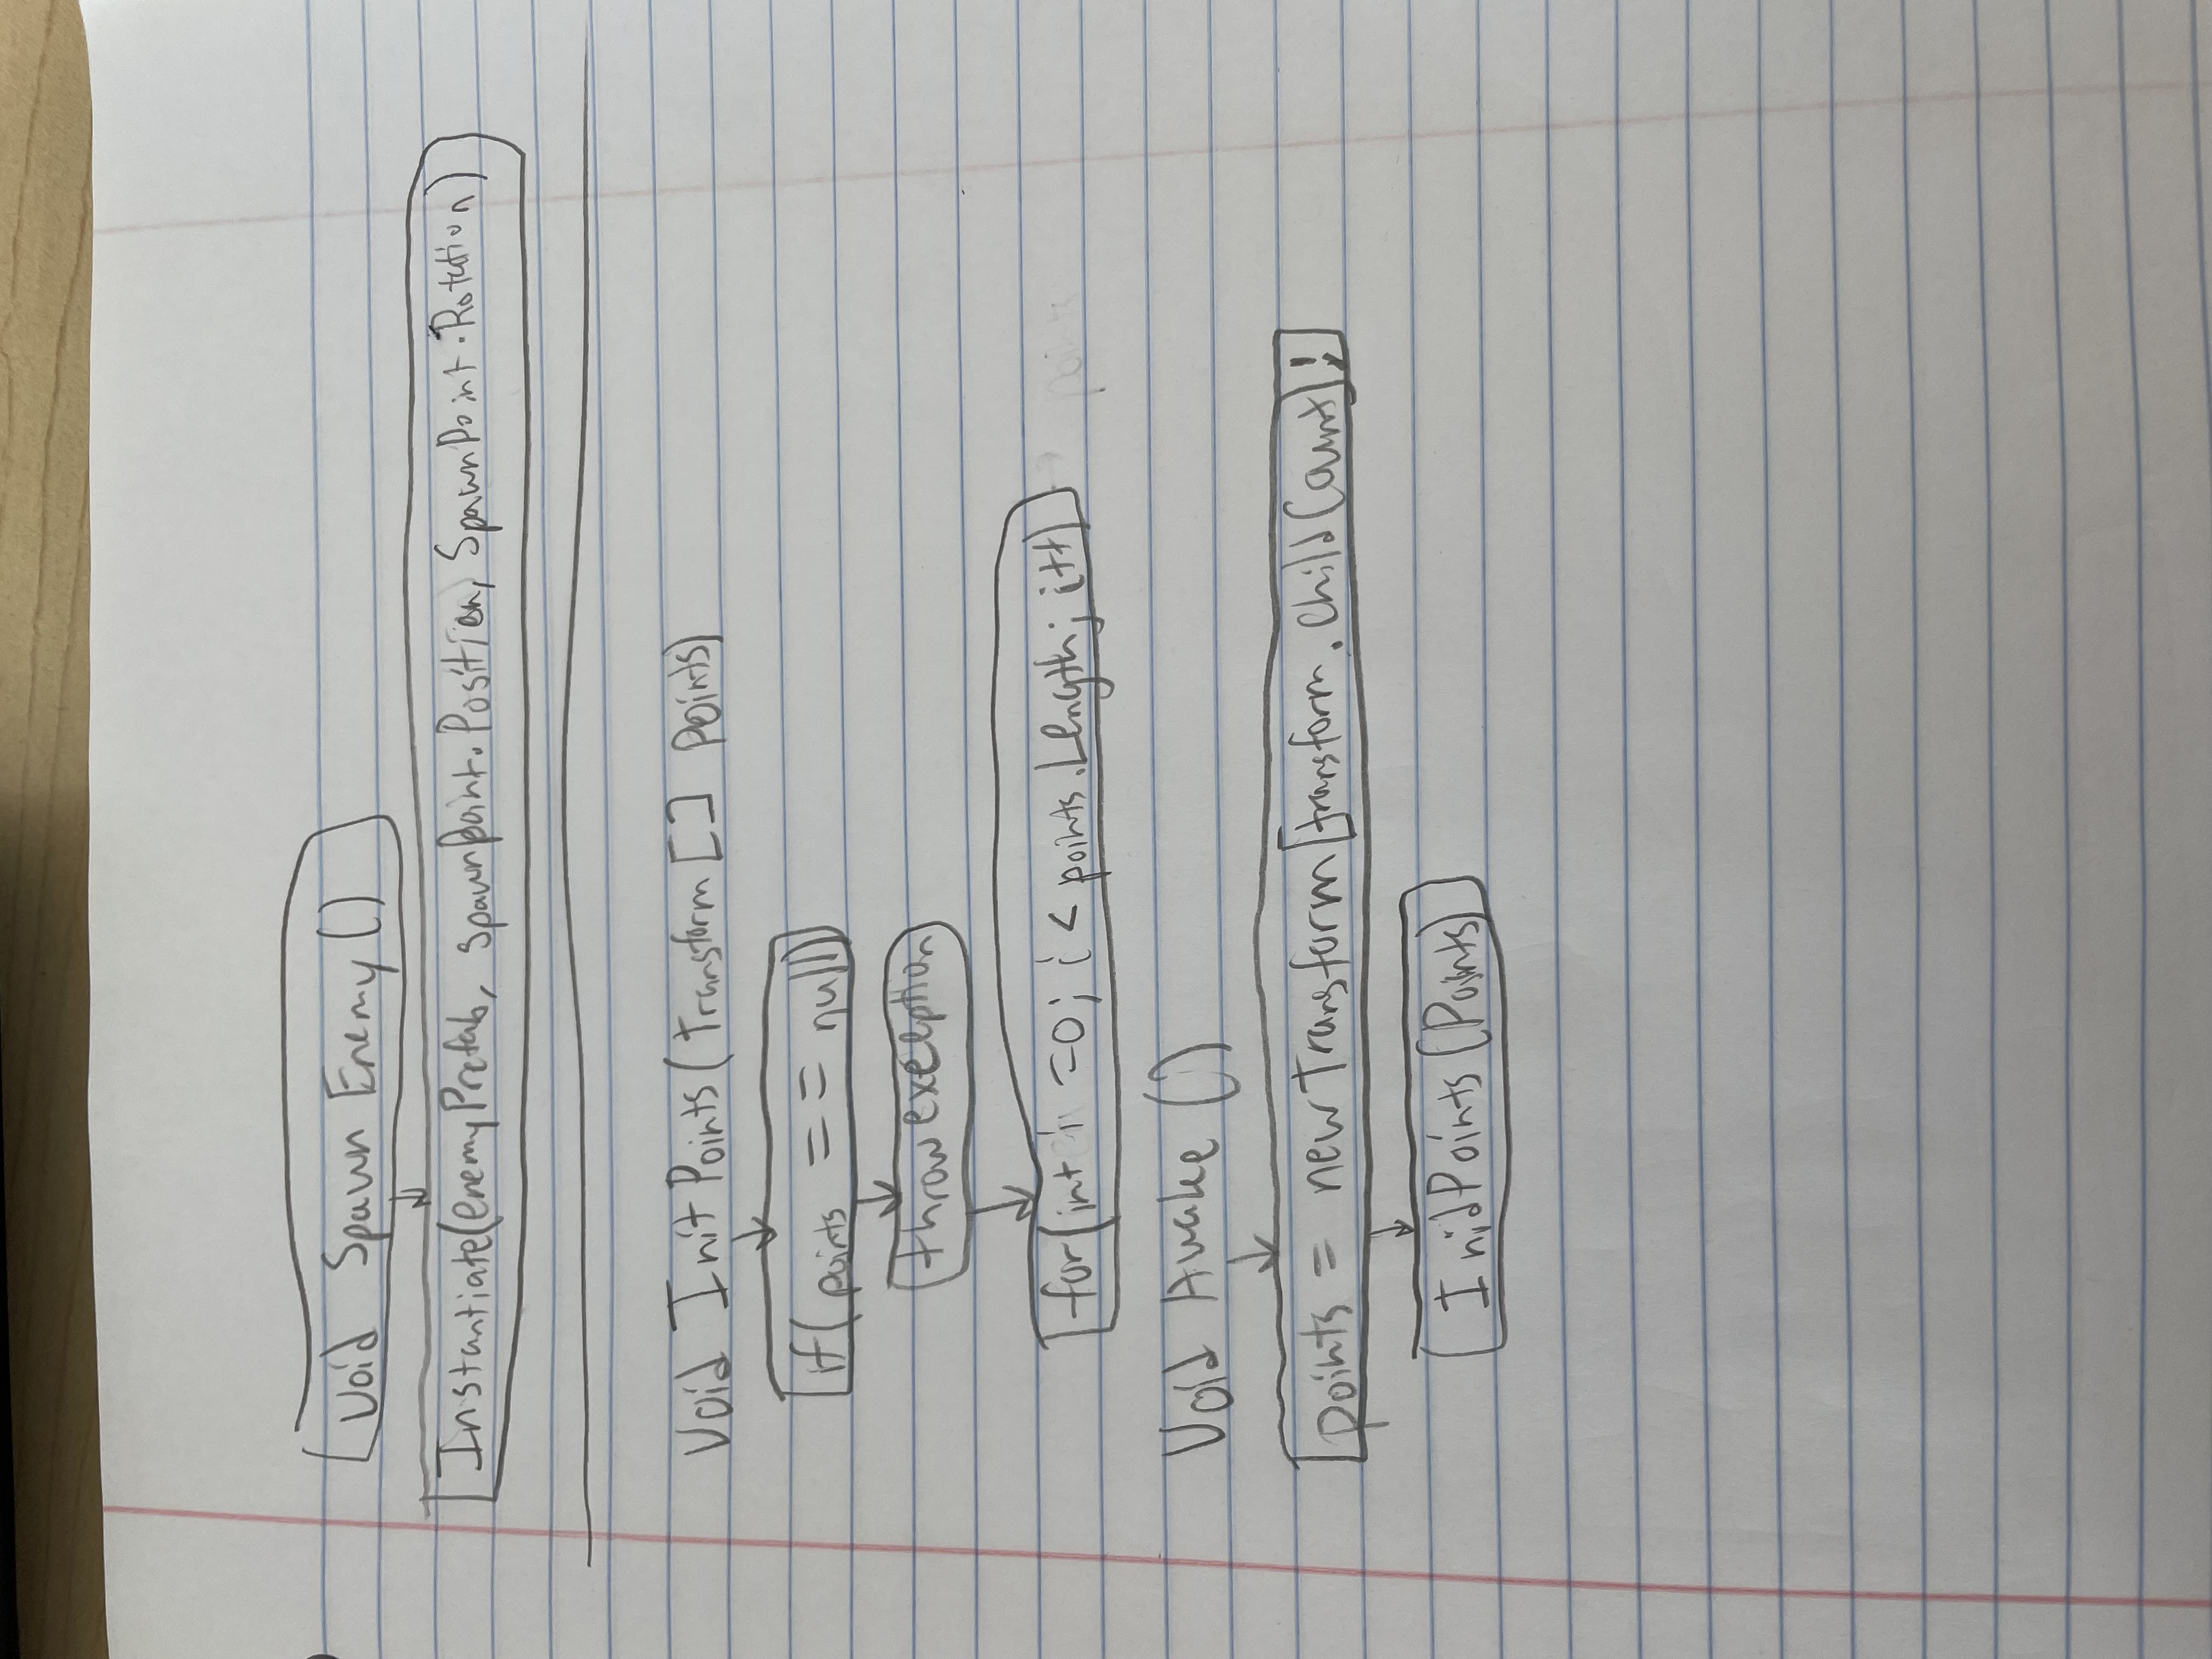 Void Spawn Enemy()
Instantiate(enemyPrefab, spawnPoint.Position, SpawnPoint.Rotation)
Void Init Points(Transform[] points)
if(points == null)
throw exception
for(int i =0; i < points.Length; i++)
Void Awake ()
points = new Transform[transform.childCount];
InidPoints(Points)